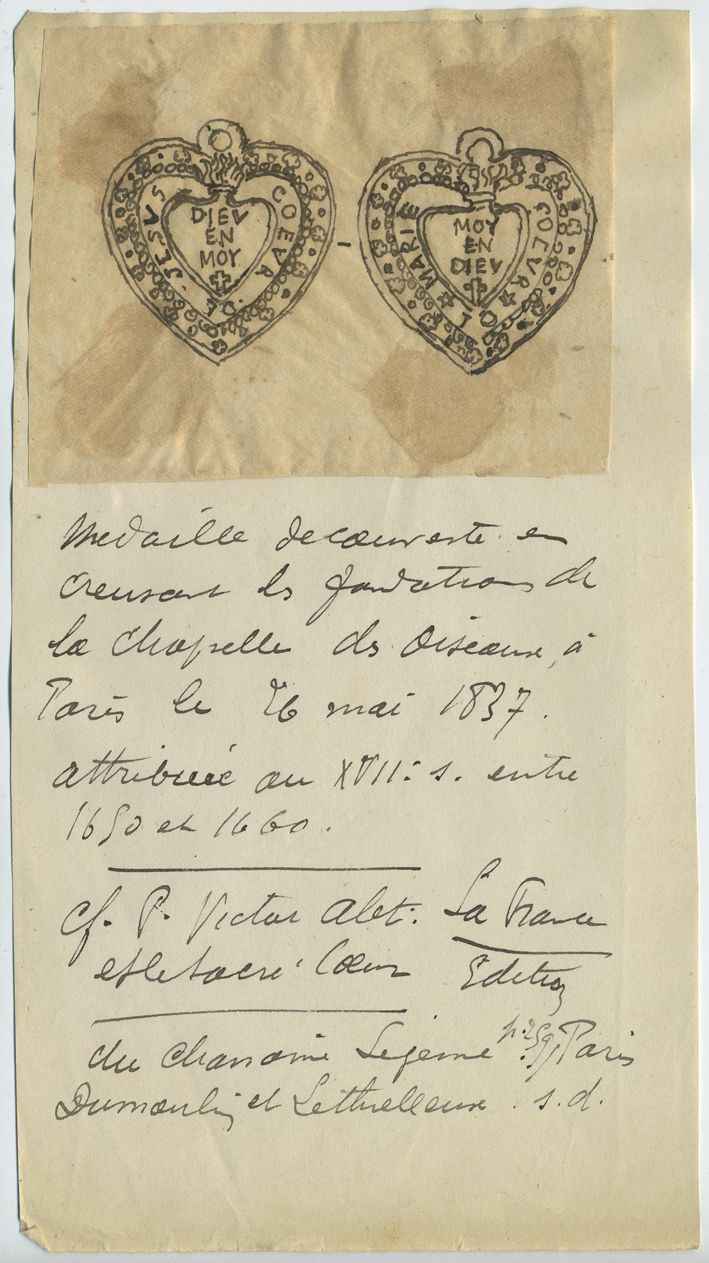 JESUS COEUR
DIEV
EN
MOY
MARIE COEUR
MOY
EN
DIEV
Medaille decouverte en
creusant les fondations de
la chapelle des Oiseaux, à
Paris le 26 mai 1837.
attribuée au XVII: s. entre
1650 et 1660.
cf. P. Victor Alet. La France
et le Sacré-Cœur Edition
du chanoine Lejeune Paris
Dumoulin et Lethielleux. s.d.